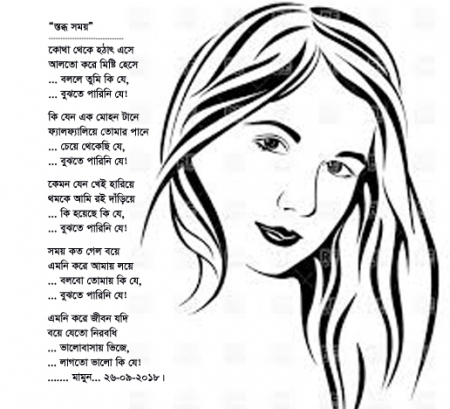 “স্তব্ধ সময়”
কোথা থেকে হঠাৎ এসে
আলতো করে মিষ্টি হেসে
... বললে তুমি কি যে,
... বুঝতে পারিনি যে!
কি যেন এক মোহন টানে
ফ্যালফ্যালিয়ে তোমার পানে
... চেয়ে থেকেছি যে,
... বুঝতে পারিনি যে!
কেমন যেন খেই হারিয়ে
থমকে আমি রই দাঁড়িয়ে
... কি হয়েছে কি যে,
... বুঝতে পারিনি যে!
সময় কত গেল বয়ে
এমনি করে আমায় লয়ে
... বলবো তোমায় কি যে,
... বুঝতে পারিনি যে!
এমনি করে জীবন যদি
বয়ে যেতো নিরবধি
... ভালোবাসায় ভিজে,
... লাগতো ভালো কি যে!
....... মামুন... ২৬-০৯-২০১৮।